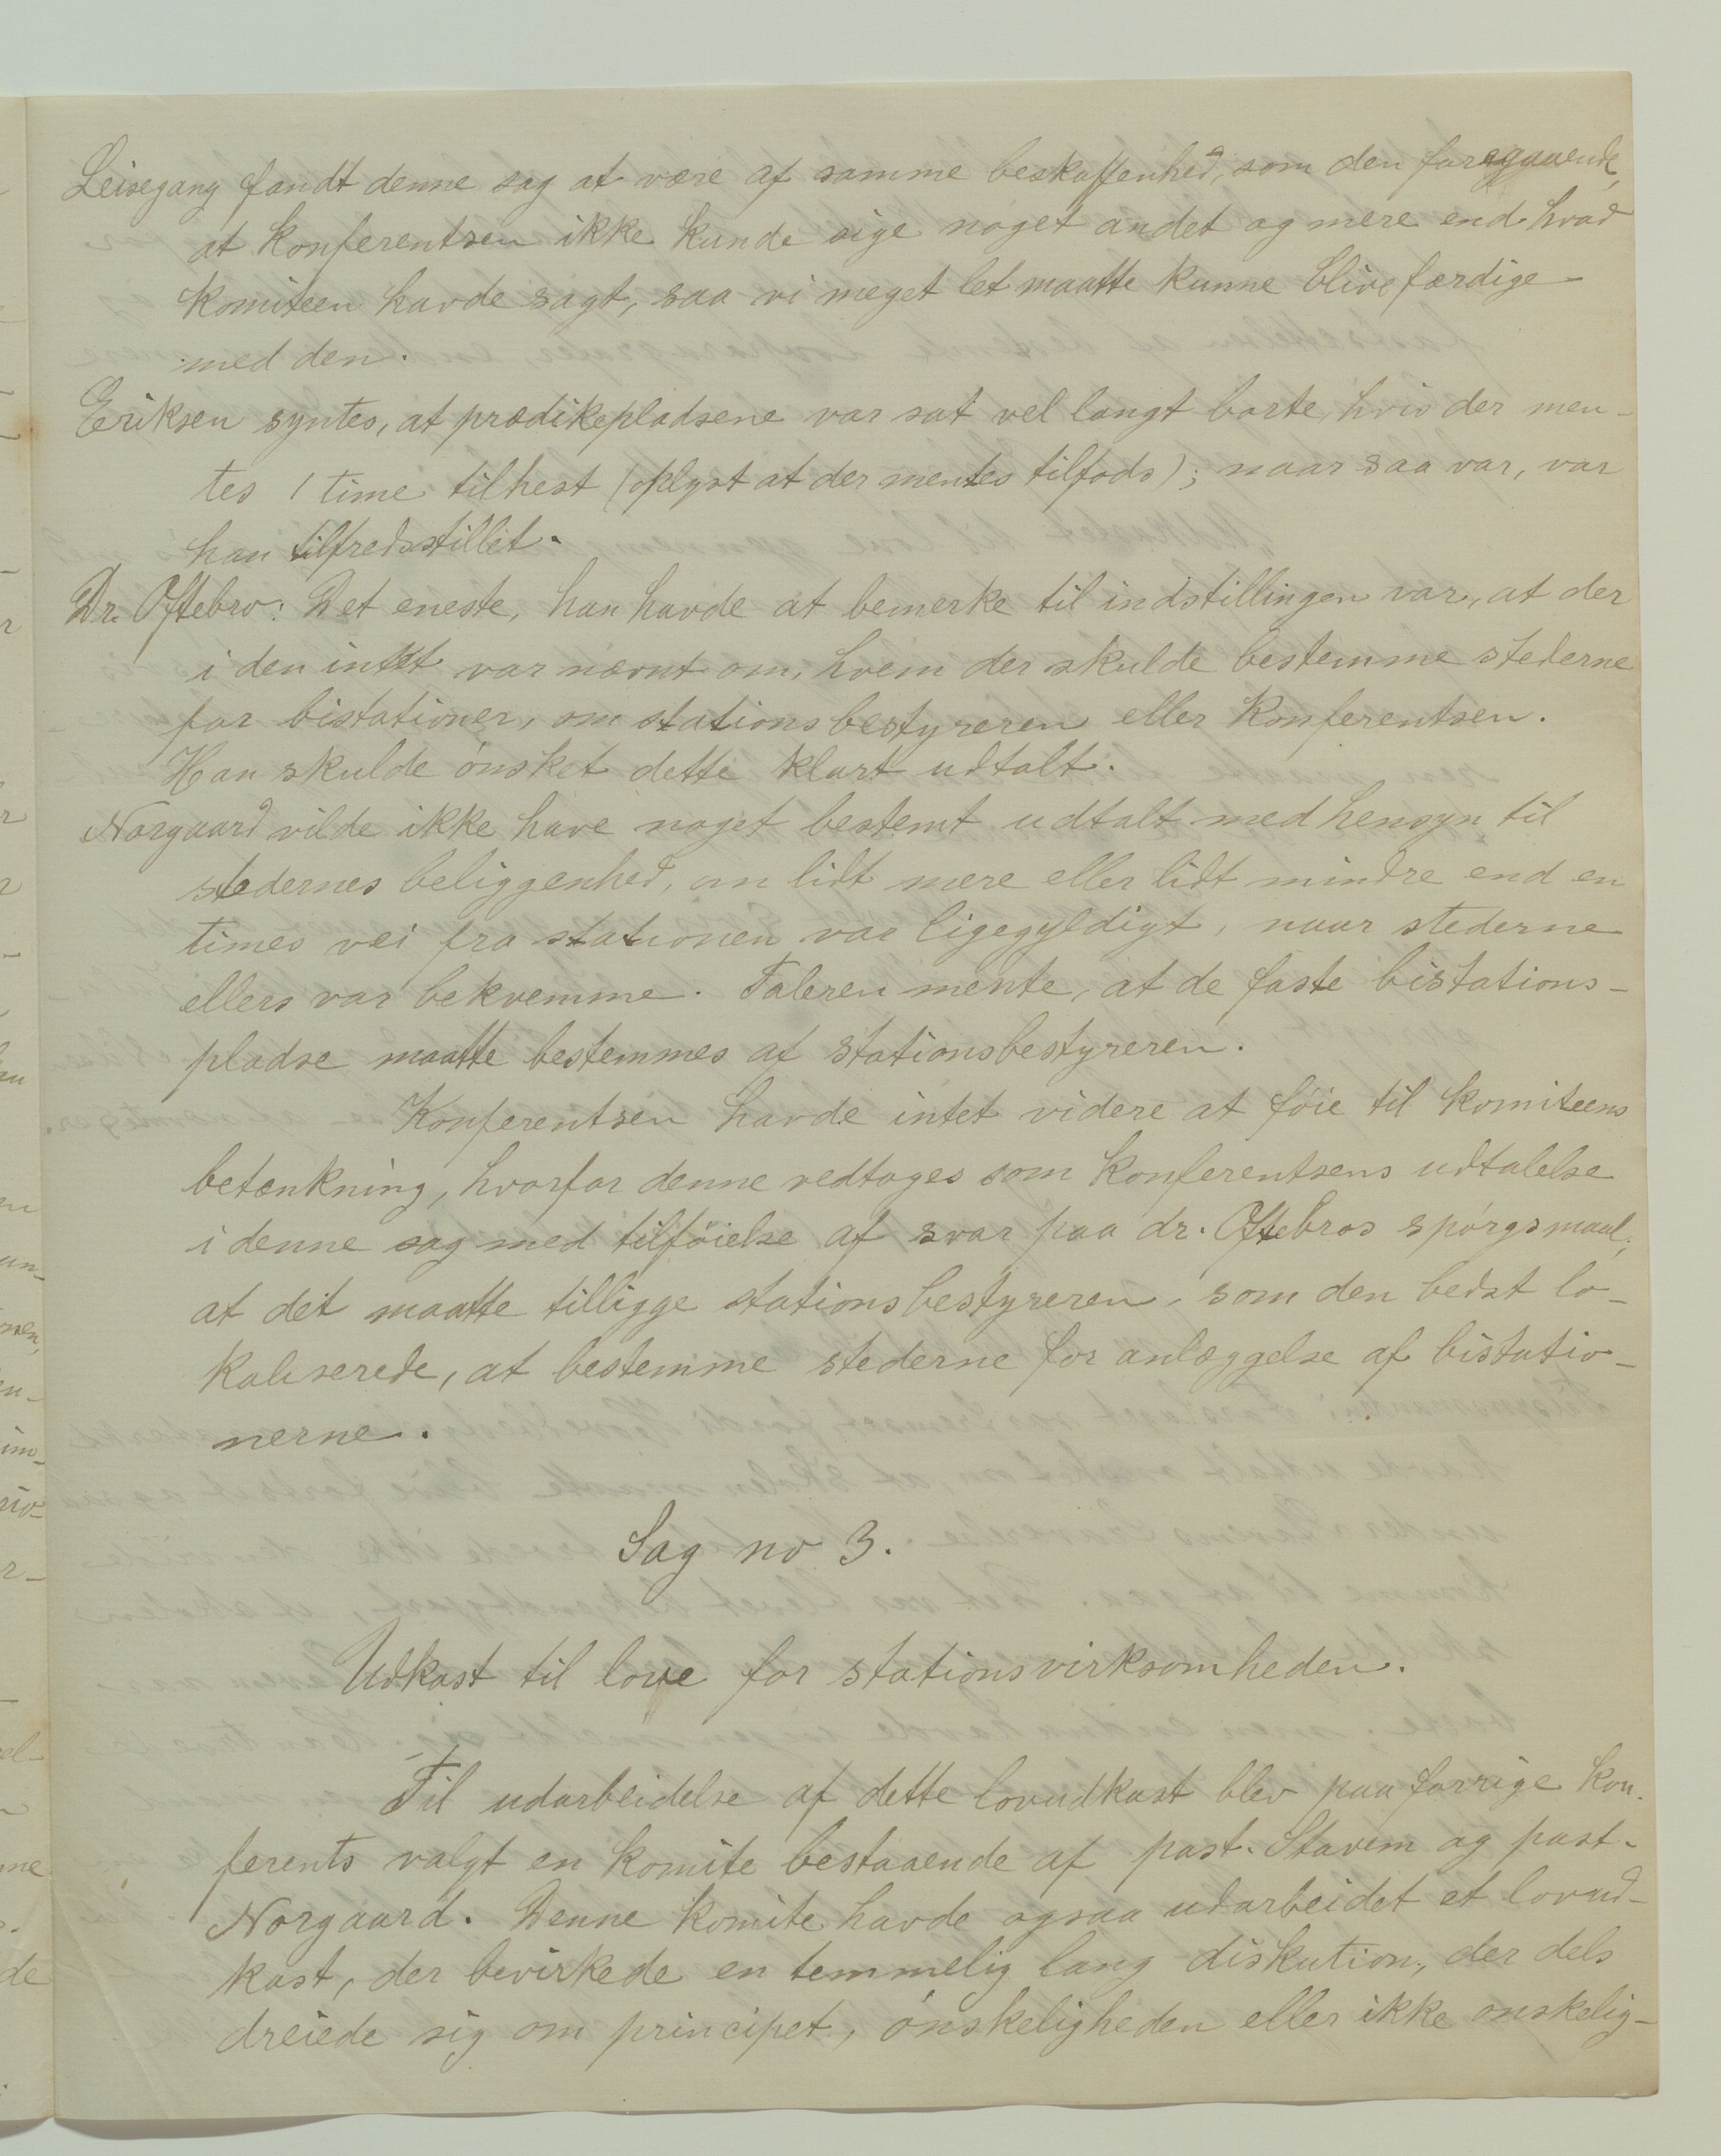 Leisegang fandt denne sag at være af samme beskaffenhed, som den foregaaende,
at konferentsen ikke kunde sige noget andet og mere end hvad
komiteen havde sagt, saa vi meget let maatte kunne blive færdige
med den.
Eriksen syntes, at prædikepladsene var sat vel langt borte, hvis der men-
tes 1 time tilhest (oplyst at der mentes tilfods); naar saa var, var
han tilfredsstillet.
Dr. Oftebro: Det eneste, han havde at bemerke til indstillingen var, at der
i den intet var nævnt om, hvem der skulde bestemme stederne
for bistationer, om stationsbestyreren eller konferentsen.
Han skulde ønsket dette klart udtalt.
Norgaard vilde ikke have noget bestemt udtalt med hensyn til
stedernes beliggenhed, om lidt mere eller lidt mindre end en
times vei fra stationen var ligegyldigt, naar stederne
ellers var bekvemme. Taleren mente, at de faste bistations-
pladse maatte bestemmes af stationsbestyreren.
Konferentsen havde intet videre at føie til komiteens
betænkning, hvorfor denne vedtoges som konferentsens udtalelse
i denne sag med tilføielse af svar paa dr. Oftebros spørgsmaal;
at det maatte tilligge stationsbestyreren, som den bedst lo-
kaliserede, at bestemme stederne for anlæggelse af bistatio-
nerne.
Sag no 3.
Udkast til love for stationsvirksomheden.
Til udarbeidelse af dette lovudkast blev paa forrige kon-
ferents valgt en komite bestaaende af past. Stavem og past.
Norgaard. Denne komite havde ogsaa udarbeidet et lovud-
kast, der bevirkede en temmelig lang diskution, der dels
dreiede sig om principet, ønskeligheden eller ikke ønskelig-